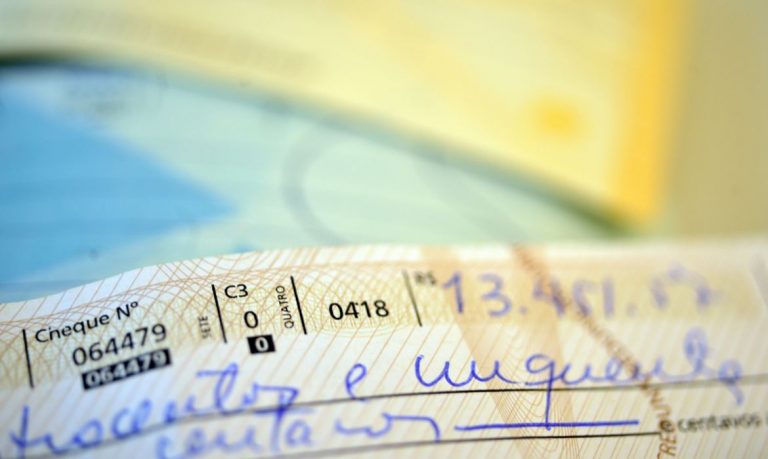 Cheque Nº C3 R$
064479 SETE 0 QUATRO 0418
064479 0
trocentos e cinquenta
centavos centavos